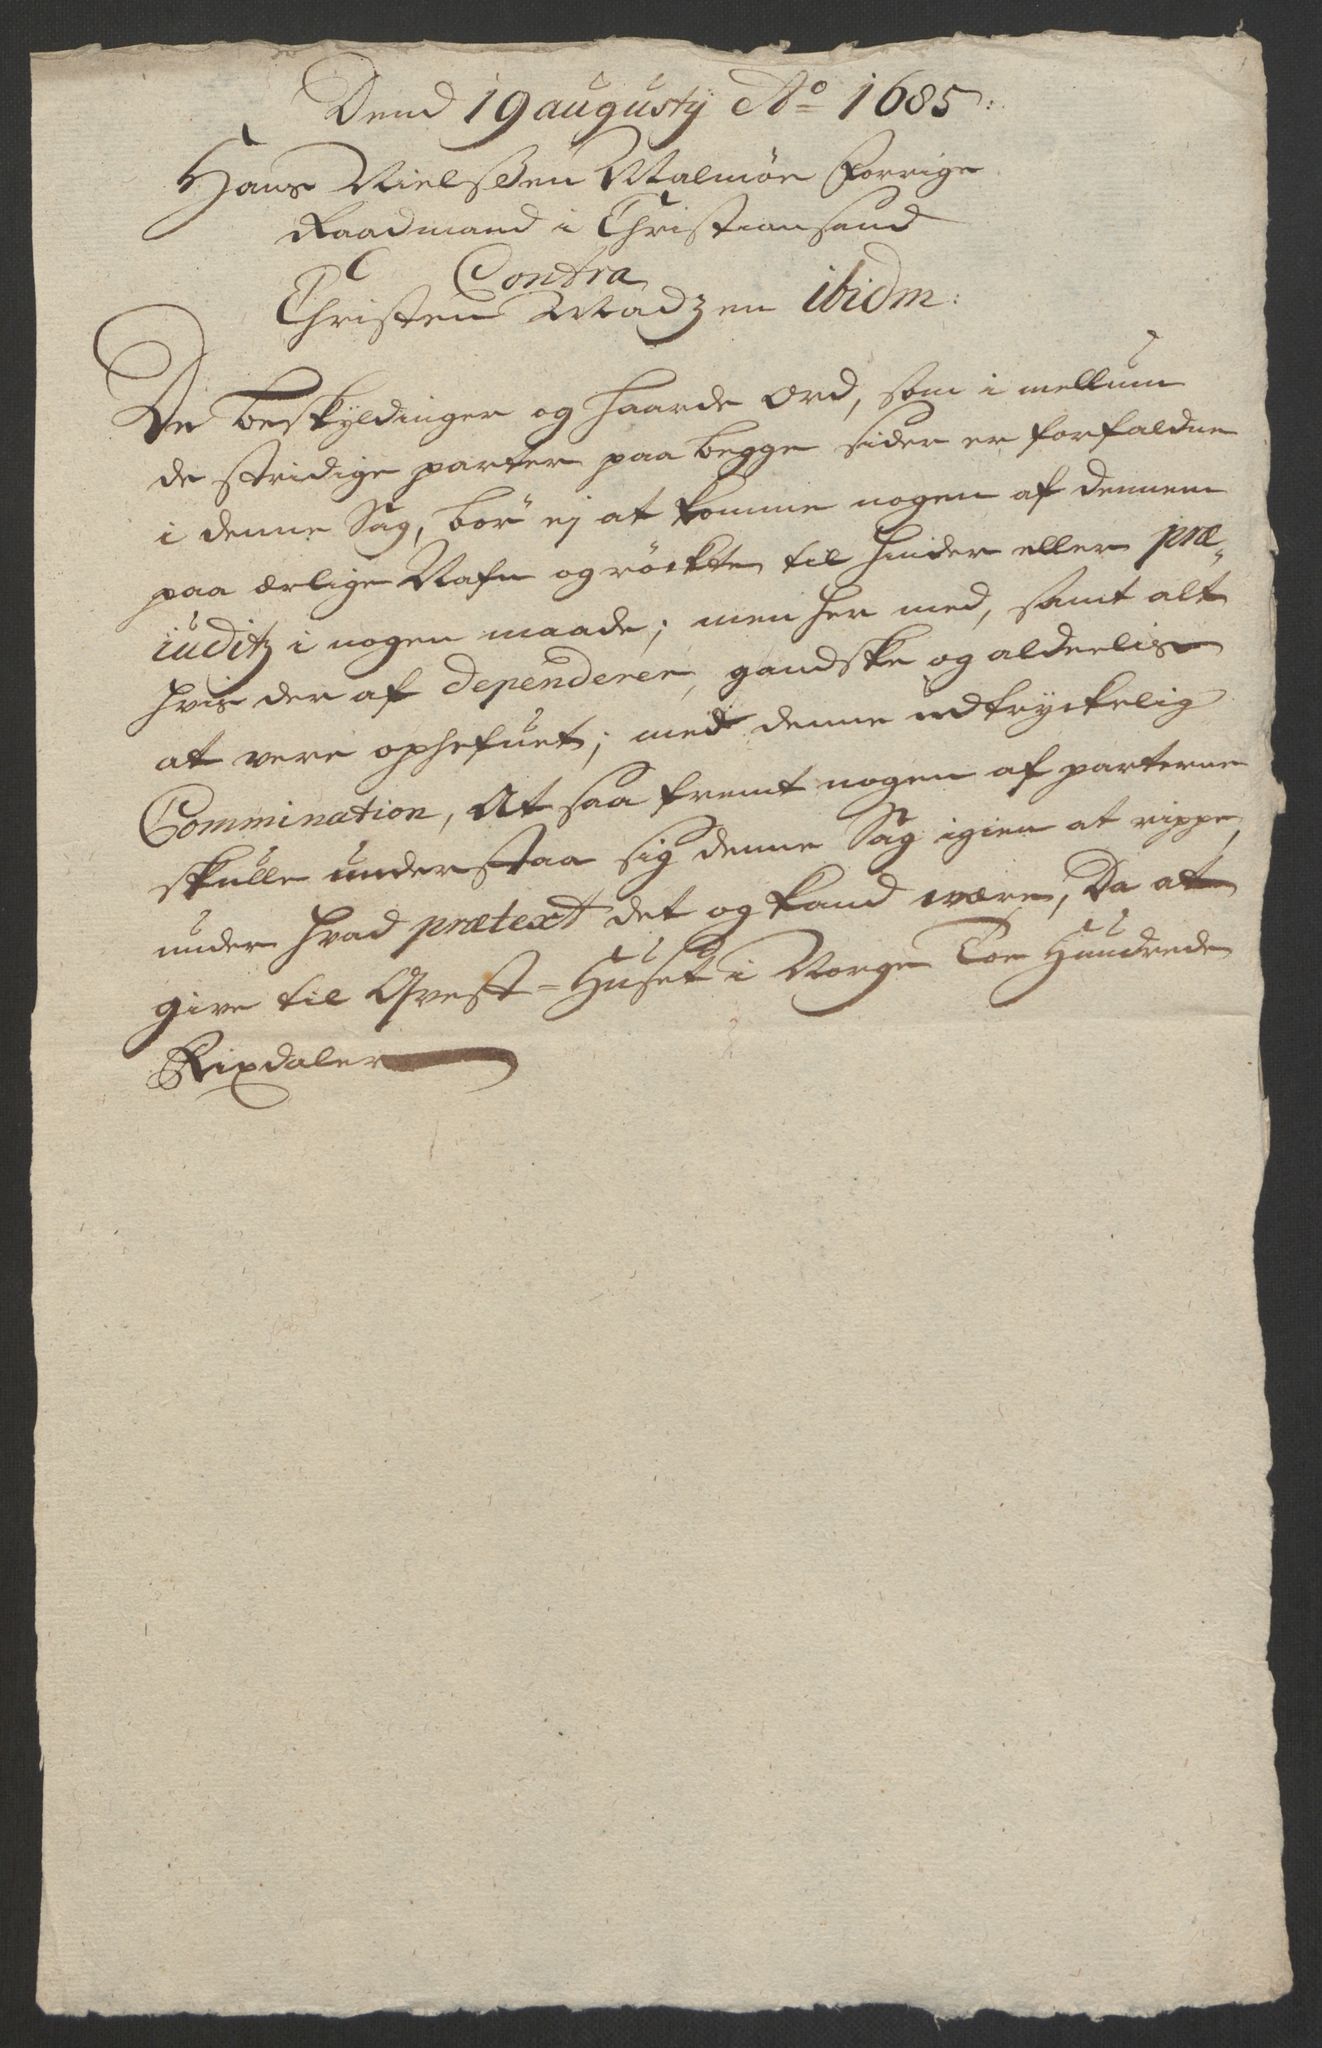 Dend 19 augustij Ao 1685:
Hans Nielsßen Malmöe Forrige
Raadmand i Christiansand
Contra
Christen Madzen ibidm:
De Beskyldinger og haarde Ord, som i mellum
de stridige parter paa begge sider er forfaldne
i denne Sag, bör ej at komme nogen af dennem
paa ærlige Nafn og röckte til hinder eller præ„
iuditz i nogen maade; men her med, samt alt
hvis der af dependerer, gandske og aldeelis
at vere ophefuet; med denne udtryckelig
Commination, At saa fremt nogen af parterne
skulle understaa sig denne Sag igien at rippe,
under hvad prætext det og kand være, Da at
give til Qvest=Huset i Norge Toe Hundrede
Rixdaler